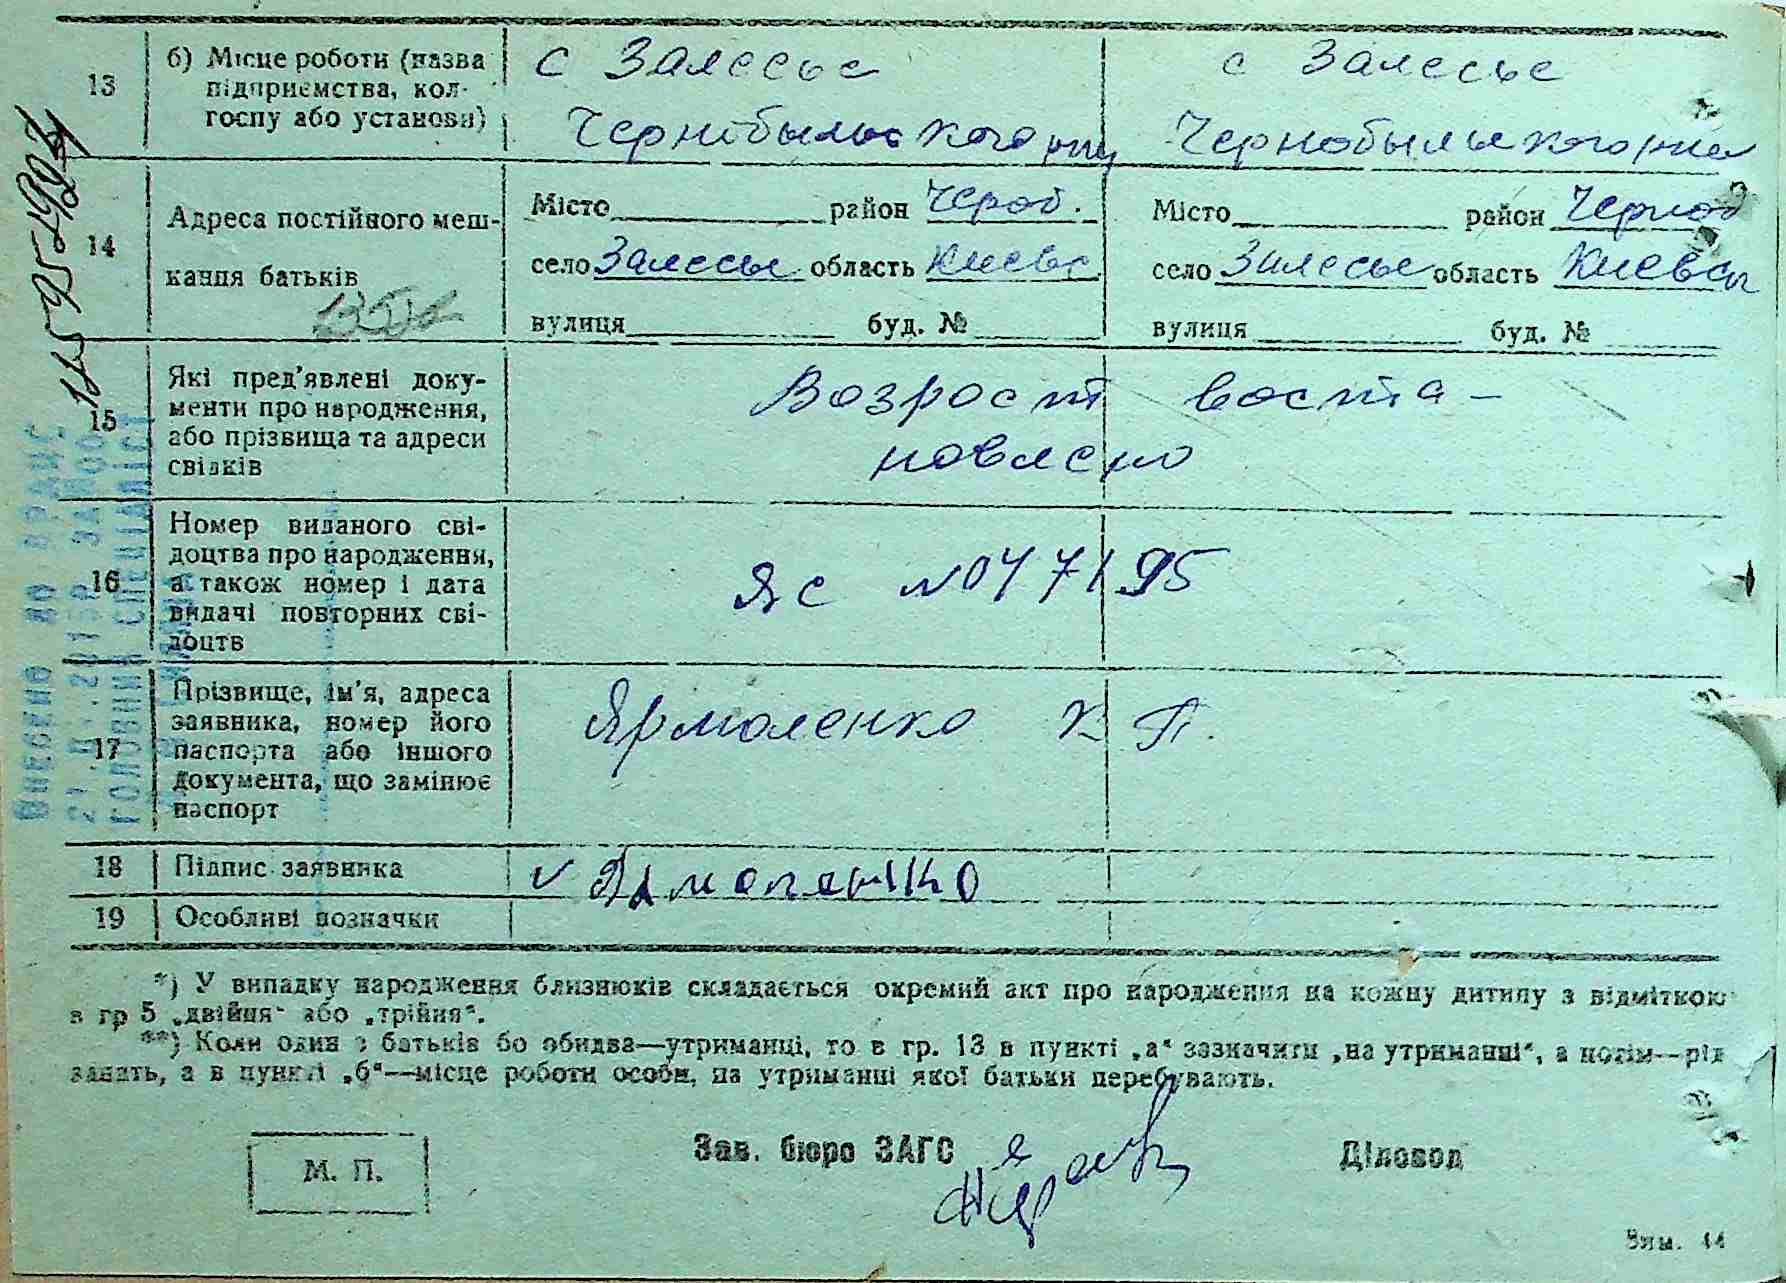 13
б) Місце роботи (назва підприємства, колгоспу або установи)
с Залесье
Чернобыльского
с Залесье
Чернобыльского
14
Адреса постійного меш-
кання батьків
Місто район Чероб.
село Залесье область Киевс
вулиця буд. №
Місто район Черноб
село Залесье область Киевск
вулиця буд. №
15
Які пред'явлені доку-
менти про народження,
або прізвища та адреси
свідків
Возраст воста-
новлено
16
Номер виданого сві-
доцтва про народження,
а також номер і дата
видачі повторних сві-
доцтв
ЯС №047195
17
Прізвище, ім'я, адреса
заявника, номер його
паспорта або іншого
документа, що замінює
паспорт
Ярмоленко К П.
18
Підпис заявника
19
Особливі позначки
Внесено до
ГОЛОВНИЙ СПЕЦІАЛІСТ
*) У випадку народження близнюків складається окремий акт про народження на кожну дитину з відміткою
в гр 5 „двійня“ або „трійня“.
**) Коли один з батьків бо обидва—утриманці, то в гр. 13 в пункті „а“ зазначити „на утриманні“, а потім—рід
занять, а в пункті „б“—місце роботи особи, на утриманні якої батьки перебувають.
М. П.
Зав. бюро ЗАГС
Діловод
Зям. 44